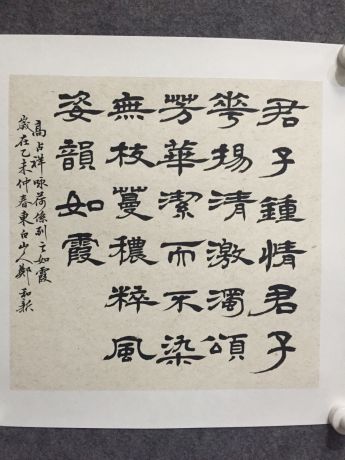 君子鍾情君子
華揚清激濁頌
芳華潔而不染
無枝蔓穠粹風
姿韻如霞
高占祥咏荷係列之如霞
歲在乙未仲春東白山人鄭和新